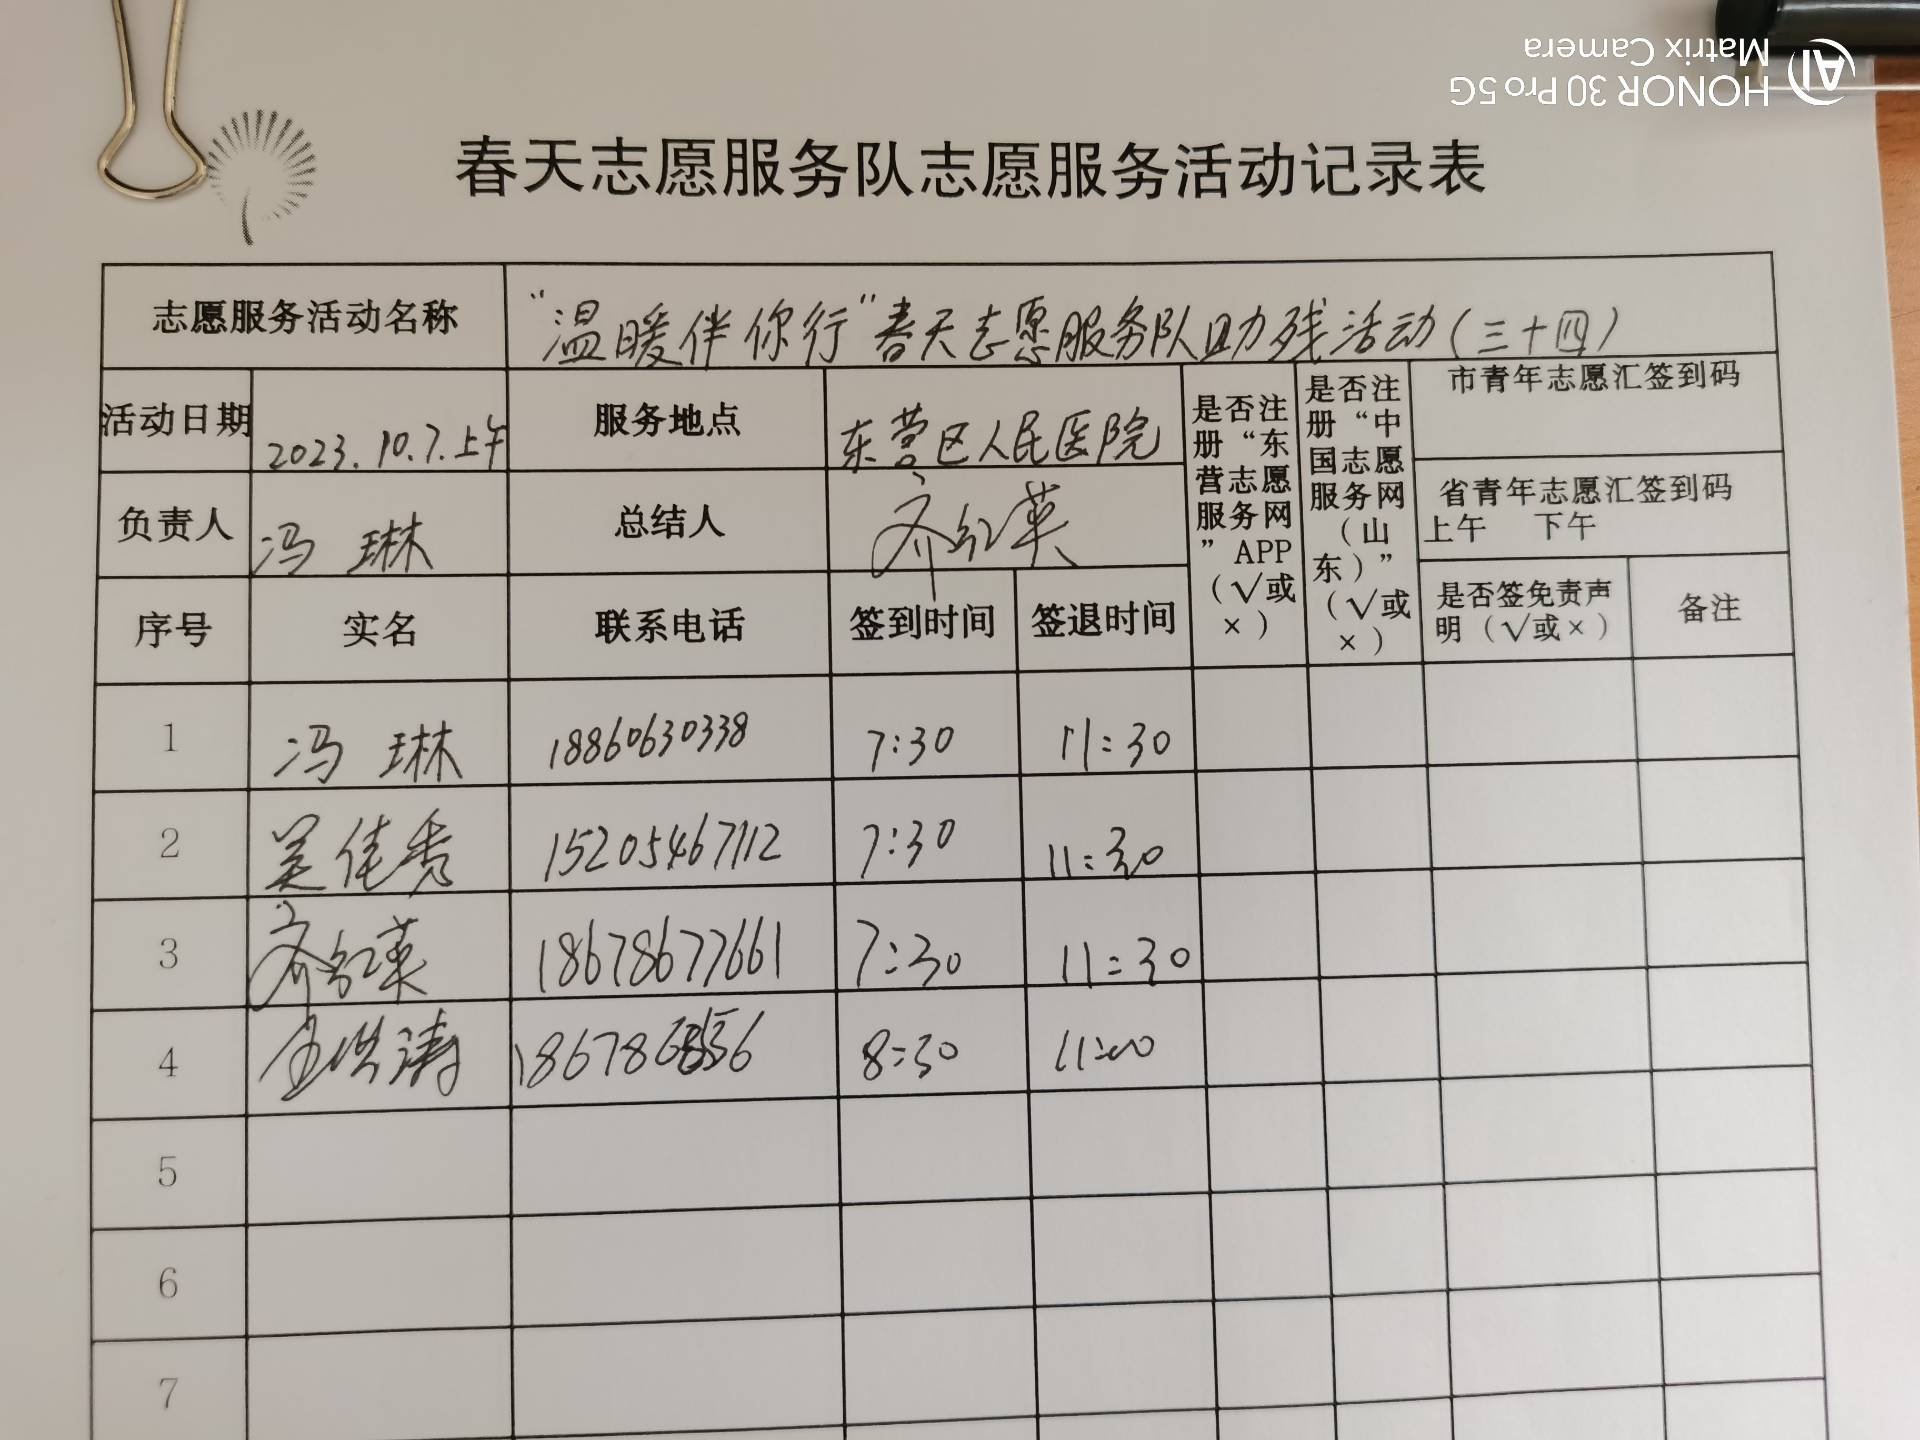 HONOR 30 Pro 5G
Matrix Camera
春天志愿服务队志愿服务活动记录表
志愿服务活动名称 “温暖伴你行”春天志愿服务队助残活动(三十四)
活动日期 2023.10.7.上午 服务地点 东营区人民医院
负责人 冯琳 总结人 齐红英
是否注册“东营志愿服务网”APP(√或×)
是否注册“中国志愿服务网(山东)”(√或×)
市青年志愿汇签到码
省青年志愿汇签到码
上午 下午
序号 实名 联系电话 签到时间 签退时间 是否签免责声明(√或×) 备注
1 冯琳 18860630338 7:30 11:30
2 吴佳秀 15205467112 7:30 11:30
3 齐红英 18678677661 7:30 11:30
4 8:30 11:00
5
6
7